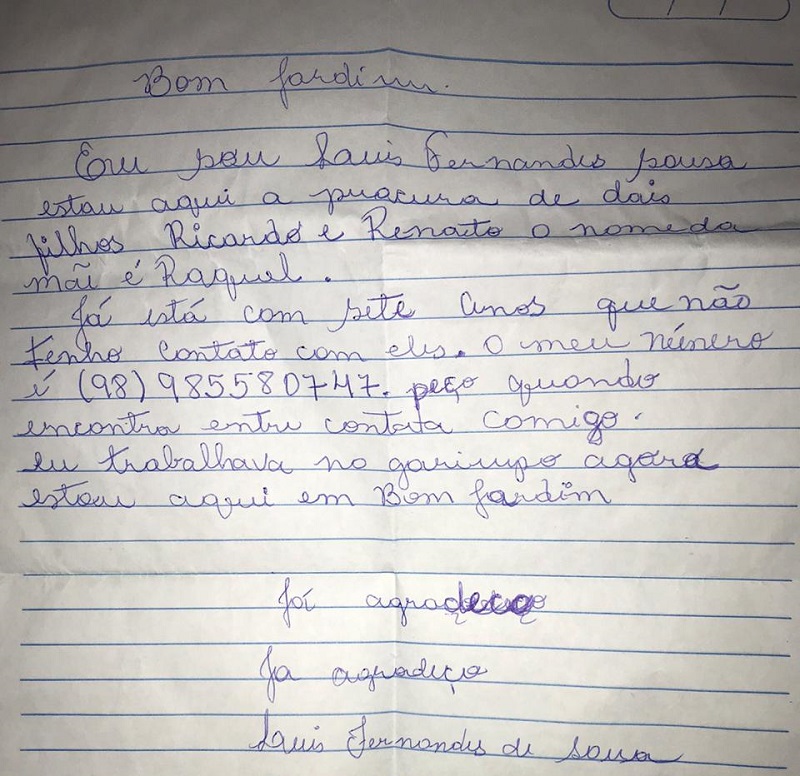 Bom Jardim.
Eu sou Luis Fernandes sousa
estou aqui a procura de dois
filhos Ricardo e Renato o nome da
mãi é Raquel.
Já está com sete anos que não
tenho contato com eles. O meu número
é (98) 985580747. peço quando
encontra entre contata comigo.
eu trabalhava no garimpo agora
estou aqui em Bom Jardim
Joí agradeço
Ja agradeço
Luis Fernandes de Sousa